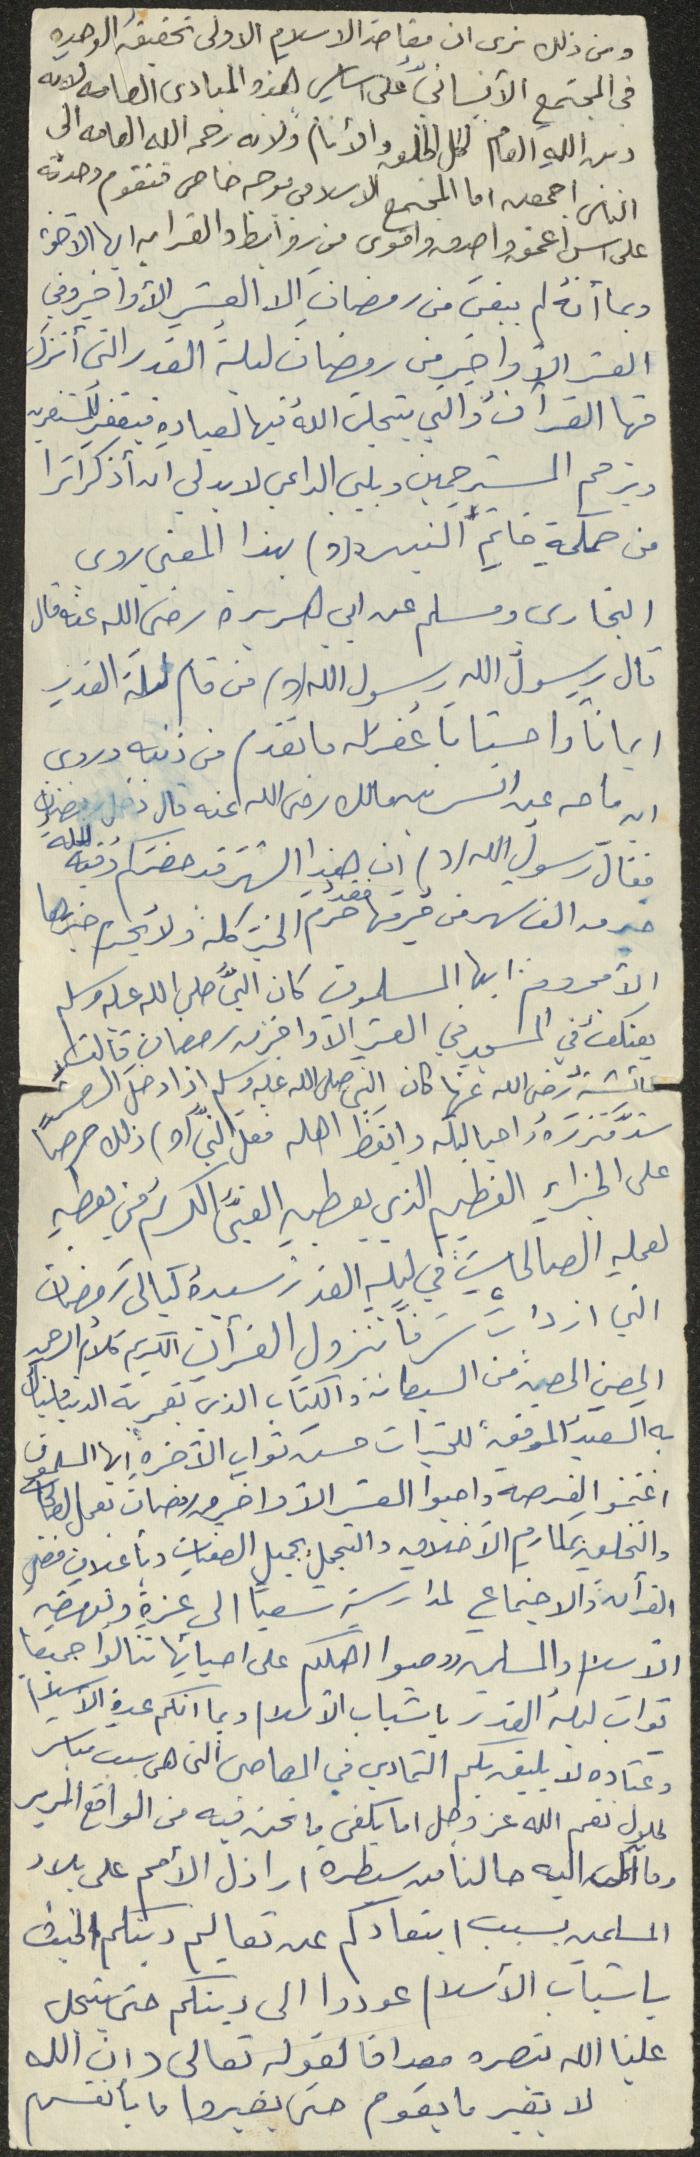 ومن ذلك نرى ان مقاصد الاسلام الاولى تحقيق الوحده
في المجتمع الأنساني على اساس هذه المبادئ العامه لانه
دين الله العام لكل الخلق والأنام ولانه رحمة الله العامه الى
الناس اجمعين اما المجتمع الاسلامي بوجه خاص فتقوم وحدته
على اسس أعمق واصدق واقوى من روابط القرابه ايها الاخوة
وبما أنه لم يبقى من رمضان إلا العشر الأواخر وفي
العشر الأواخر من رمضان ليلة القدر التي أنزل
فيها القرآن والتي يتجلى الله فيها لعباده فيغفر للمستغفرين
ويرحم المسترحمين ويلبي الداعي لابد لي ان أذكر أثرا
من حكمة خاتم النبيين (ص) بهذا المعنى روى
البخاري ومسلم عن ابي هريرة رضي الله عنه قال
قال رسول الله رسول الله (ص) من قام ليلة القدر
ايماناً واحتساباً غفر له ما تقدم من ذنبه وروى
ابن ماجه عن انس بن مالك رضي الله عنه قال دخل رمضان
فقال رسول الله (ص) ان هذا الشهر قد حضركم وفيه ليلة
خير من الف شهر من حرمها فقد حرم الخير كله ولا يحرم خيرها
الا محروم ايها المسلمون كان النبي صلى الله عليه وسلم
يعتكف في المسجد في العشر الأواخر من رمضان قالت
عائشة رضي الله عنها كان النبي صلى الله عليه وسلم اذا دخل العشر
شد مئزره واحيا ليله وايقظ اهله فعل النبي (ص) ذلك حرصاً
على الجزاء العظيم الذي يعطيه الغني الكريم من يعطيه
لعمله الصالحات في ليلة القدر سيدة ليالي رمضان
التي ازدادت شرفاً بنزول القرأن الكريم كلام الرحمن
الحصن الحصين من الشيطان والكتاب الذي تعمر به الدنيا
به السعيد الموفق للخيرات حسن ثواب الآخره أيها المسلمون
اغتنموا الفرصة واحيوا العشر الأواخر من رمضان بعمل الصالحات
والتخلق بمكارم الأخلاق والتجمل بجميل الصفات
القرآن والاجتماع لمدارسته سعياً الى عزة ونهضة
الاسلام والمسلمين وحضوا اهلكم على احيائها تنالوا جميعا
ثواب ليلة القدر يا شباب الأسلام وبما انكم عدة الأسلام
وعتاده لا يليق بكم التمادي في المعاصي التي هي سبب مباشر
لحلول نقم الله عز وجل اما يكفي ما نحن فيه من الواقع المرير
وما آلت اليه حالنا من سيطرة اراذل الأمم على بلاد
المسلمين بسبب ابتعادكم عن تعاليم دينكم الحنيف
يا شباب الأسلام عودوا الى دينكم حتى يتجلى
علينا الله بنصره مصداقا لقوله تعالى (ان الله
لا يغير ما بقوم حتى يغيروا ما بأنفسهم